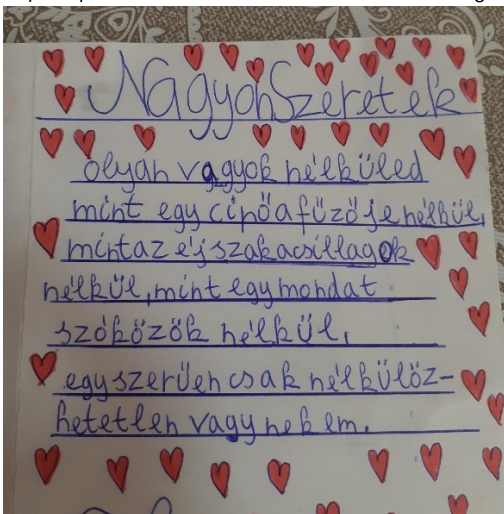 NagyonSzeretek
olyan vagyok nélküled
mint egy cipőafűzőjenélkül,
mintazéjszakacsillagok
nélkül, mint egymondat
szóközök nélkül,
egyszerűen csak nélkülöz-
hetetlen vagy nekem.